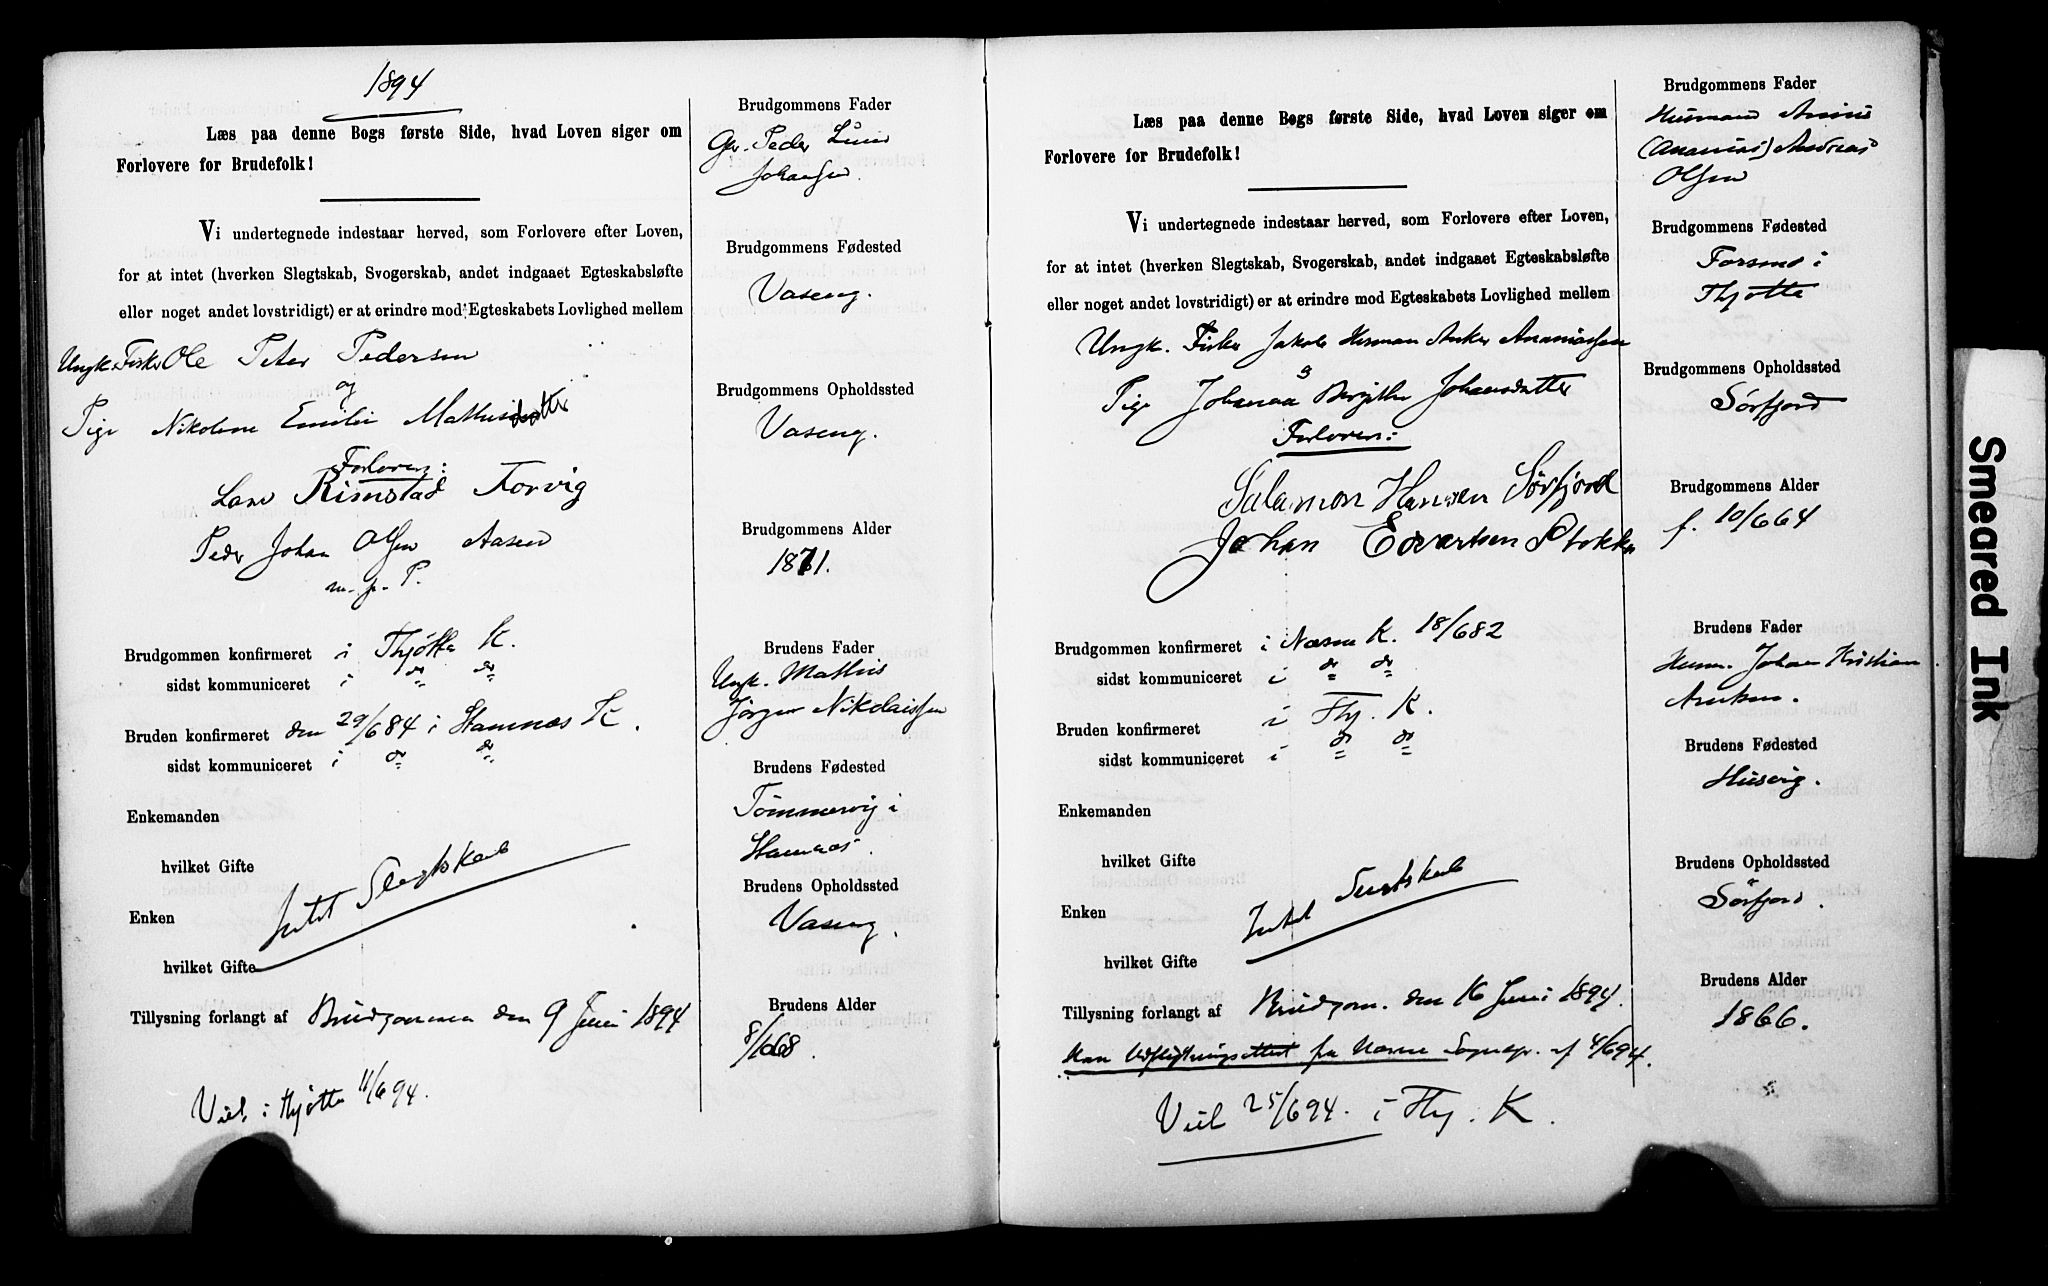 1894
Læs paa denne Bogs første Side, hvad Loven siger om
Forlovere for Brudefolk!
Vi undertegnede indestaar herved, som Forlovere efter Loven,
for at intet (hverken Slegtskab, Svogerskab, andet indgaaet Egteskabsløfte
eller noget andet lovstridigt) er at erindre mod Egteskabets Lovlighed mellem
Ungk. Fisker Ole Peter Pedersen
og
Pige Nikoline Emilie Mathisdatter
Forlovere:
Lars Rimstad Forvig
Peder Johan Olsen Aasen
m. p. P.
Brudgommen konfirmeret i Thjøtta K.
sidst kommuniceret i do do
Bruden konfirmeret den 29/6 84 i Stamnæs K.
sidst kommuniceret i do do
Enkemanden
hvilket Gifte
Enken
Intet Slegtskab
hvilket Gifte
Tillysning forlangt af Brudgommen den 9 Juni 1894
Viel. i Thjøtta 11/6 94.
Brudgommens Fader
Gr. Peder Lund
Johansen.
Brudgommens Fødested
Vaseng.
Brudgommens Opholdssted
Vaseng.
Brudgommens Alder
1871.
Brudens Fader
Ungk. Mathis
Jørgen Nikolaissen
Brudens Fødested
Tømmervig i
Stamnæs.
Brudens Opholdssted
Vaseng.
Brudens Alder
8/1068.
Læs paa denne Bogs første Side, hvad Loven siger om
Forlovere for Brudefolk!
Vi undertegnede indestaar herved, som Forlovere efter Loven,
for at intet (hverken Slegtskab, Svogerskab, andet indgaaet Egteskabsløfte
eller noget andet lovstridigt) er at erindre mod Egteskabets Lovlighed mellem
Ungk. Fisker Jakob Herman Anker Ananiassen
&
Pige Johanna Bergithe Johansdatter
Forlovere:
Salamon Hansen Sørfjord
Johan Edvartsen Stokka
Brudgommen konfirmeret i Næsne K. 18/6 82
sidst kommuniceret i do do
Bruden konfirmeret i Thj. K.
sidst kommuniceret i do do
Enkemanden
hvilket Gifte
Enken
Intet Slegtskab
hvilket Gifte
Tillysning forlangt af Brudgom. den 16 Juni 1894.
Han Udflytningsattest fra Næsne Sognepr. af 4/6 94.
Viel 25/6 94. i Thj. K.
Brudgommens Fader
Husmand
(Ananias) Andreas
Olsen
Brudgommens Fødested
Forsund i
Thjøtta
Brudgommens Opholdssted
Sørfjord
Brudgommens Alder
f. 10/6 64
Brudens Fader
Husm. Johan Kristian
Brudens Fødested
Husvig.
Brudens Opholdssted
Sørfjord.
Brudens Alder
1866.
Smeared Ink